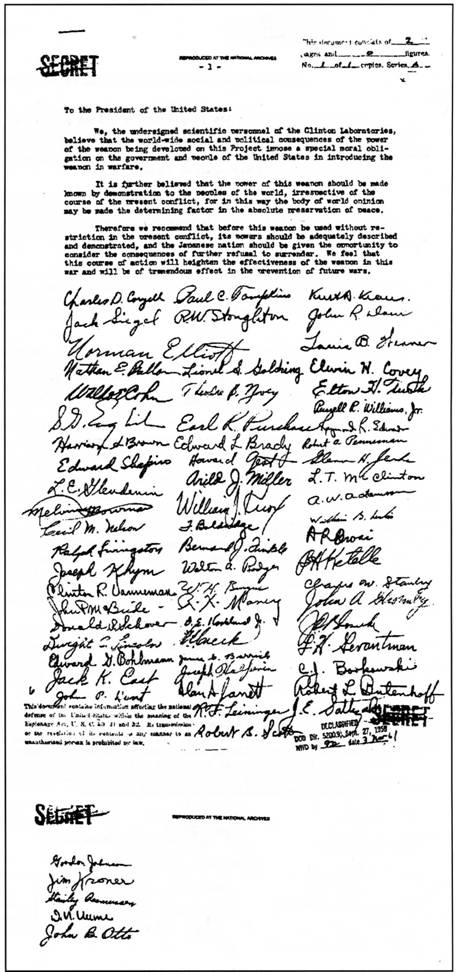 This document consists of 2
pages and 0 figures
No. 1 of 1 copies, Series A
SECRET
REPRODUCED AT THE NATIONAL ARCHIVES
- 1 -
To the President of the United States:
We, the undersigned scientific personnel of the Clinton Laboratories,
believe that the world-wide social and political consequences of the power
of the weapon being developed on this Project impose a special moral obli-
gation on the government and people of the United States in introducing the
weapon in warfare.
It is further believed that the power of this weapon should be made
known by demonstration to the peoples of the world, irrespective of the
course of the present conflict, for in this way the body of world opinion
may be made the determining factor in the absolute preservation of peace.
Therefore we recommend that before this weapon be used without re-
striction in the present conflict, its powers should be adequately described
and demonstrated, and the Japanese nation should be given the opportunity to
consider the consequences of further refusal to surrender. We feel that
this course of action will heighten the effectiveness of the weapon in this
war and will be of tremendous effect in the prevention of future wars.
Charles D. Coryell Paul C. Tompkins Kurt A. Kraus
Jack Siegel R.W. Stoughton John R. Dam
Norman Elliott Louis B.
Nathan E. Ballou Lionel S. Goldring Edwin H. Covey
Waldo Cohn Theodore B. Novey Elton H. Turk
Earl K. Purchase Russell R. Williams, Jr.
Harrison S. Brown Edward L. Brady Robert A. Penneman
Edward Shapiro Howard Gest
L.E. Glendenin Arild J. Miller L.T. McClinton
Melvin William A.W. Adamson
Cecil M. Nelson
Ralph Livingston Bernard J. Finkle
Joseph Khym Walton A. Rodger
Clinton R. Vanneman Charles W. Stanley
John P. McBride John A.
Donald
Dwight C. Lincoln
Edward G. Bohlmann James S. C.J. Borkowski
Jack K. East Joseph
John P. Hunt Alan A. Jarrett Robert L. Butenhoff
This document contains information affecting the national
defense of the United States within the meaning of the
Espionage Act, U. S. C. 50 31 and 32. Its transmission
or the revelation of its contents in any manner to an
unauthorized person is prohibited by law.
R.F. Leininger J.E.
Robert B. Scott
SECRET
DECLASSIFIED
DOD Dir. 5200.9, Sept. 27, 1958
NWD by date
SECRET
REPRODUCED AT THE NATIONAL ARCHIVES
Gordon Johnson
Jim Kroner
Stanley Rasmussen
D.N. Hume
John B. Otto